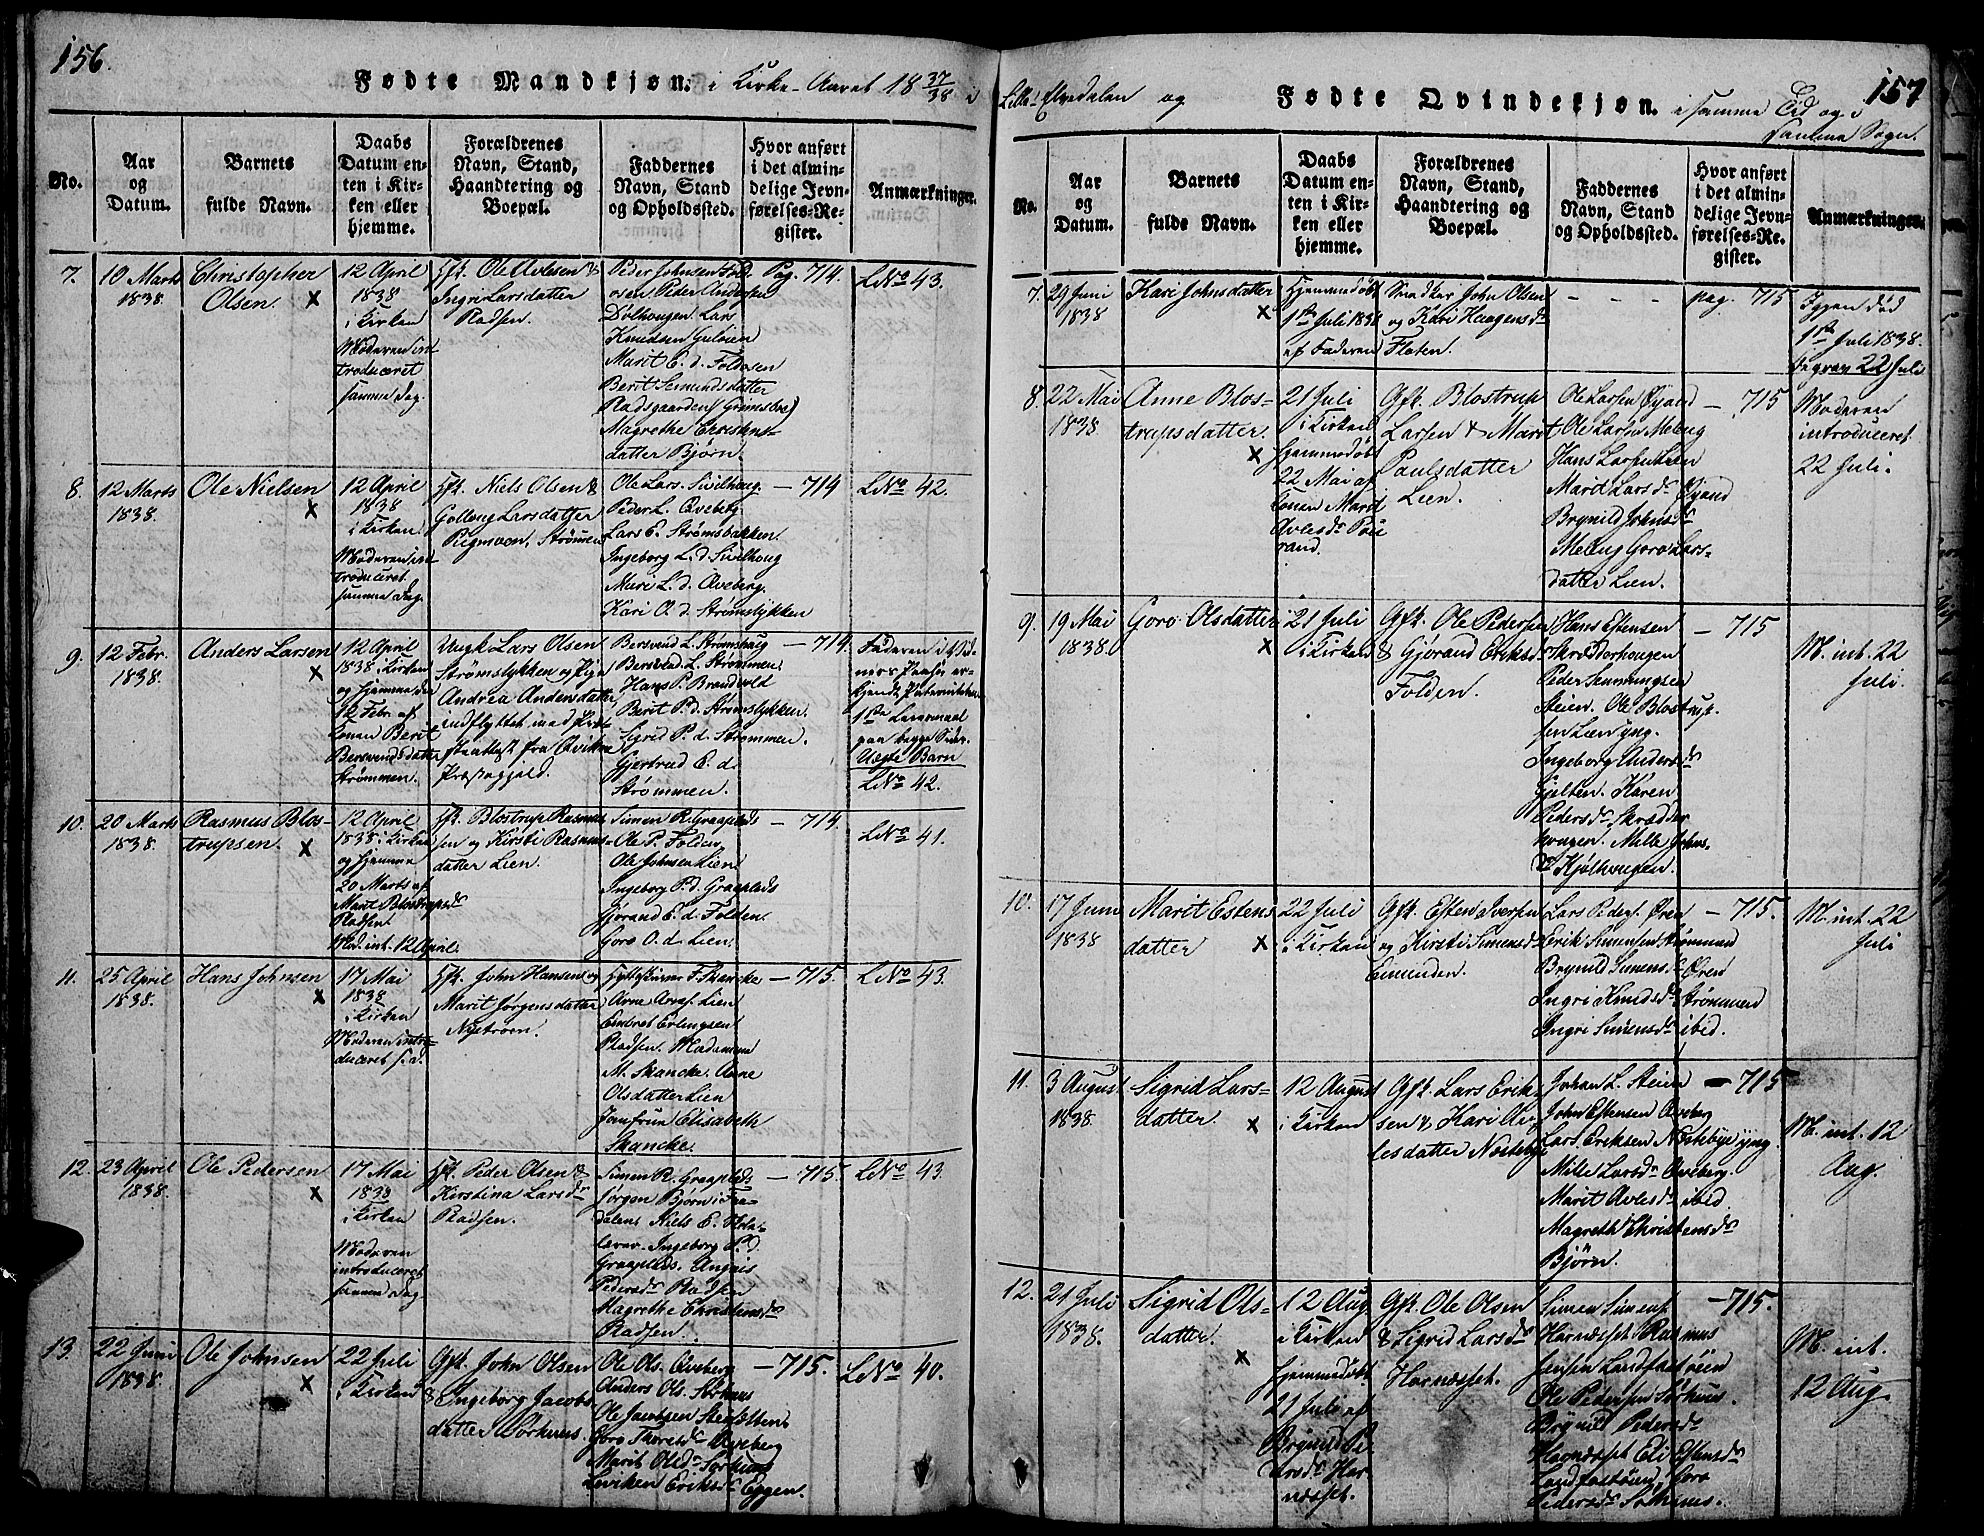 156.
Fødte Mandkjøn. i Kirke-Aaret 18 37/38 i
No.
Aar
og
Datum.
Barnets
fulde Navn.
Daabs
Datum en-
ten i Kir-
ken eller
hjemme.
Forældrenes
Navn, Stand,
Haandtering og
Boepæl.
Faddernes
Navn, Stand
og Opholdssted.
Hvor anført
i det almin-
delige Jevn-
førelses-Re-
gister.
Anmærkninger.
7.
10 Marts
1838.
Christopher
Olsen. x
12 April
1838
i Kirken
Moderen in-
troduceret
samme Dag.
Gft. Ole Avlesen &
Ingri Larsdatter
Radsen.
Peder Johnsen Fol-
osen Peder Andersen
Dolhougen Lars
Knudsen Guloien
Marit E. d. Foldosen
Berit Semundsdatter
Radsgaarden (Grimsbu)
Magrethe Christens-
datter Bjørn.
Pag. 714.
L No 43.
8.
12 Marts
1838.
Ole Nielsen
x
12 April
1838
i Kirken
Moderen in-
troduceret
samme Dag.
Gft. Niels Olsen &
Golloug Larsdatter
Rigmoen, Strømmen
Ole Lars. Sivilhoug.
Peder L. Qveberg
Lars E. Strømsbakken.
Ingeborg L. d. Sivilhoug
Mari L. d. Qveberg.
Kari O. d. Strømslykken
— 714
L No 42.
9.
12 Febr.
1838.
Anders Larsen
x
12 April
1838 i Kirken
og hjemme den
12 Febr. af
Konen Berit
Bersvendsdatter
Strømmen.
Ungk. Lars Olsen
Strømslykken og Pige
Andrea Andersdatter
indflyttet med Præste-
attest fra Qvikne
Præstegjeld.
Bersvend L. Strømshaug
Bersvend L. Strømmen.
Hans P. Brandvold
Berit P. d. Strømslykken.
Sigrid P. d. Strømmen.
Gjertrud E. d.
Strømmen.
— 714.
Faderen i
kjende Paterniteten
1ste Leiermaal
paa begge Sider.
Uægte Barn
L No 42.
10.
20 Marts
1838.
Rasmus Blos-
trupsen. x
12 April
1838 i Kirken
og hjemme
20 Marts af
Marit Blostrupsdr
Radsen.
Mod. int. 12 April.
Gft. Blostrup Rasmus-
sen og Kirsti Rasmus-
datter Lien.
Simen R. Graaplads
Ole P. Folden
Ole Johnsen Lien
Ingeborg P. d. Graaplads
Gjørand E. d. Folden.
Goro O. d. Lien.
— 714.
L No 41.
11.
25 April
1838.
Hans Johnsen
x
17 Mai
1838
i Kirken
Moderen intro-
duceret s. d.
Gft. John Hansen og
Marit Jørgensdatter
Nystrøen.
F. Skancke
Arne Arnes. Lien
Embret Erlingsen
Radsen. Madamme
M. Skancke. Anne
Olsdatter Lien
Jomfrue Elisabeth
Skancke.
— 715.
L No 43.
12.
23 April
1838.
Ole Pedersen
x
17 Mai
1838
i Kirken
Moderen
introduceret
samme Dag.
Gft. Peder Olsen &
Kirstina Larsdr
Radsen.
Simen R. Graaplads
Jørgen Bjørn i Fol-
dalen Niels E.
Ingeborg P. d.
Graaplads. Angnis
Pedersdr Radsen
Magrethe Christensdr
Radsen.
— 715.
L No 43.
13.
22 Juni
1838.
Ole Johnsen
x
22 Juli
i Kirken
Gft. John Olsen
& Ingeborg Jacobs-
datter Sørhuus.
Ole Ols. Qveberg
Anders Ols. Sørhuus
Ole Jacobsen
Goro Thoresdr Qveberg
Marit Olsd. Sørhuus
Eriksdr Eggen.
— 715.
L No 40.
157
Lille-Elvedalen og Fødte Qvindekjøn. i samme Tid og i
samme Sogn.
No.
Aar
og
Datum.
Barnets
fulde Navn.
Daabs
Datum en-
ten i Kir-
ken eller
hjemme.
Forældrenes
Navn, Stand,
Haandtering og
Boepæl.
Faddernes
Navn, Stand
og Opholdssted.
Hvor anført
i det almin-
delige Jevn-
førelses-Re-
gister.
Anmærkninger.
7.
29 Juni
1838
Kari Johnsdatter
x
Hjemmedøbt
1ste Juli 1838
af Faderen
John Olsen
og Kari Haagensdr
Floten.
— — — —
pag. 715
Igjen død
1ste Juli 1838.
begrav 22 Juli
8.
22 Mai
1838.
Anne Blos-
trupsdatter.
x
21 Juli
i Kirken
Hjemmedøbt
22 Mai af
Konen Marit
Avlesdr
Gft. Blostrup
Larsen & Marit
Paulsdatter
Lien.
Ole Larsen Øyand
Ole Larsen Meloug
Hans Larsen Lien
Marit Larsdr Øyand
Brynild Johnsdr
Meloug Goro Lars-
datter Lien.
— 715
Moderen
introduceret
22 Juli.
9.
19 Mai
1838.
Goro Olsdatter
x
21 Juli
i Kirken
Gft. Ole Pedersen
& Gjørand Eriksdr
Folden.
Hans Estensen
Skrædderhougen
Peder Semmingsen
Steien. Ole Blostrup-
sen Lien yng.
Ingeborg Andersdr
Gjelten. Karen
Pedersdr Skrædder-
hougen. Mille Johns-
dr Kjølhougen.
— 715
M. int. 22
Juli.
10.
17 Juni
1838
Marit Estens-
datter x
22 Juli
i Kirken
Gft. Esten Iversen
og Kirsti Simensdr
Eimunden.
Lars Peders. Øren
Erik Simensen Strømmen
Brynild Simens. Øren
Ingri Knudsdr Strømmen
Ingri Simensdr ibid.
— 715.
M. int. 22
Juli
11.
3 August
1838.
Sigrid Lars-
datter. x
12 August
i Kirken
Gft. Lars Erik-
sen & Kari Av-
lesdatter Nordebye
Johan L. Steien
John Estensen Qveberg
Lars Eriksen Nordebye yng
Mille Larsdr Qveberg.
Marit Avlesdr ibid
Magreth Christensdr
Bjørn.
— 715
M. int. 12
Aug.
12.
21 Juli
1838.
Sigrid Ols-
datter.
x
12 Aug
i Kirken
Hjemmedøbt
21 Juli af
Brynild Pe-
dersdr Hor-
nesset.
Gft. Ole Olsen
& Sigrid Larsdr
Hornesset.
Simen Simens.
Hornesset Rasmus
Jensen Landfastøien
Ole Pedersen Sørhuus.
Brynil Pedersdr
Hornesset Eli Estensdr
Landfastøien, Goro
Pedersdr Sørhuus.
— 715.
M. int.
12 Aug.